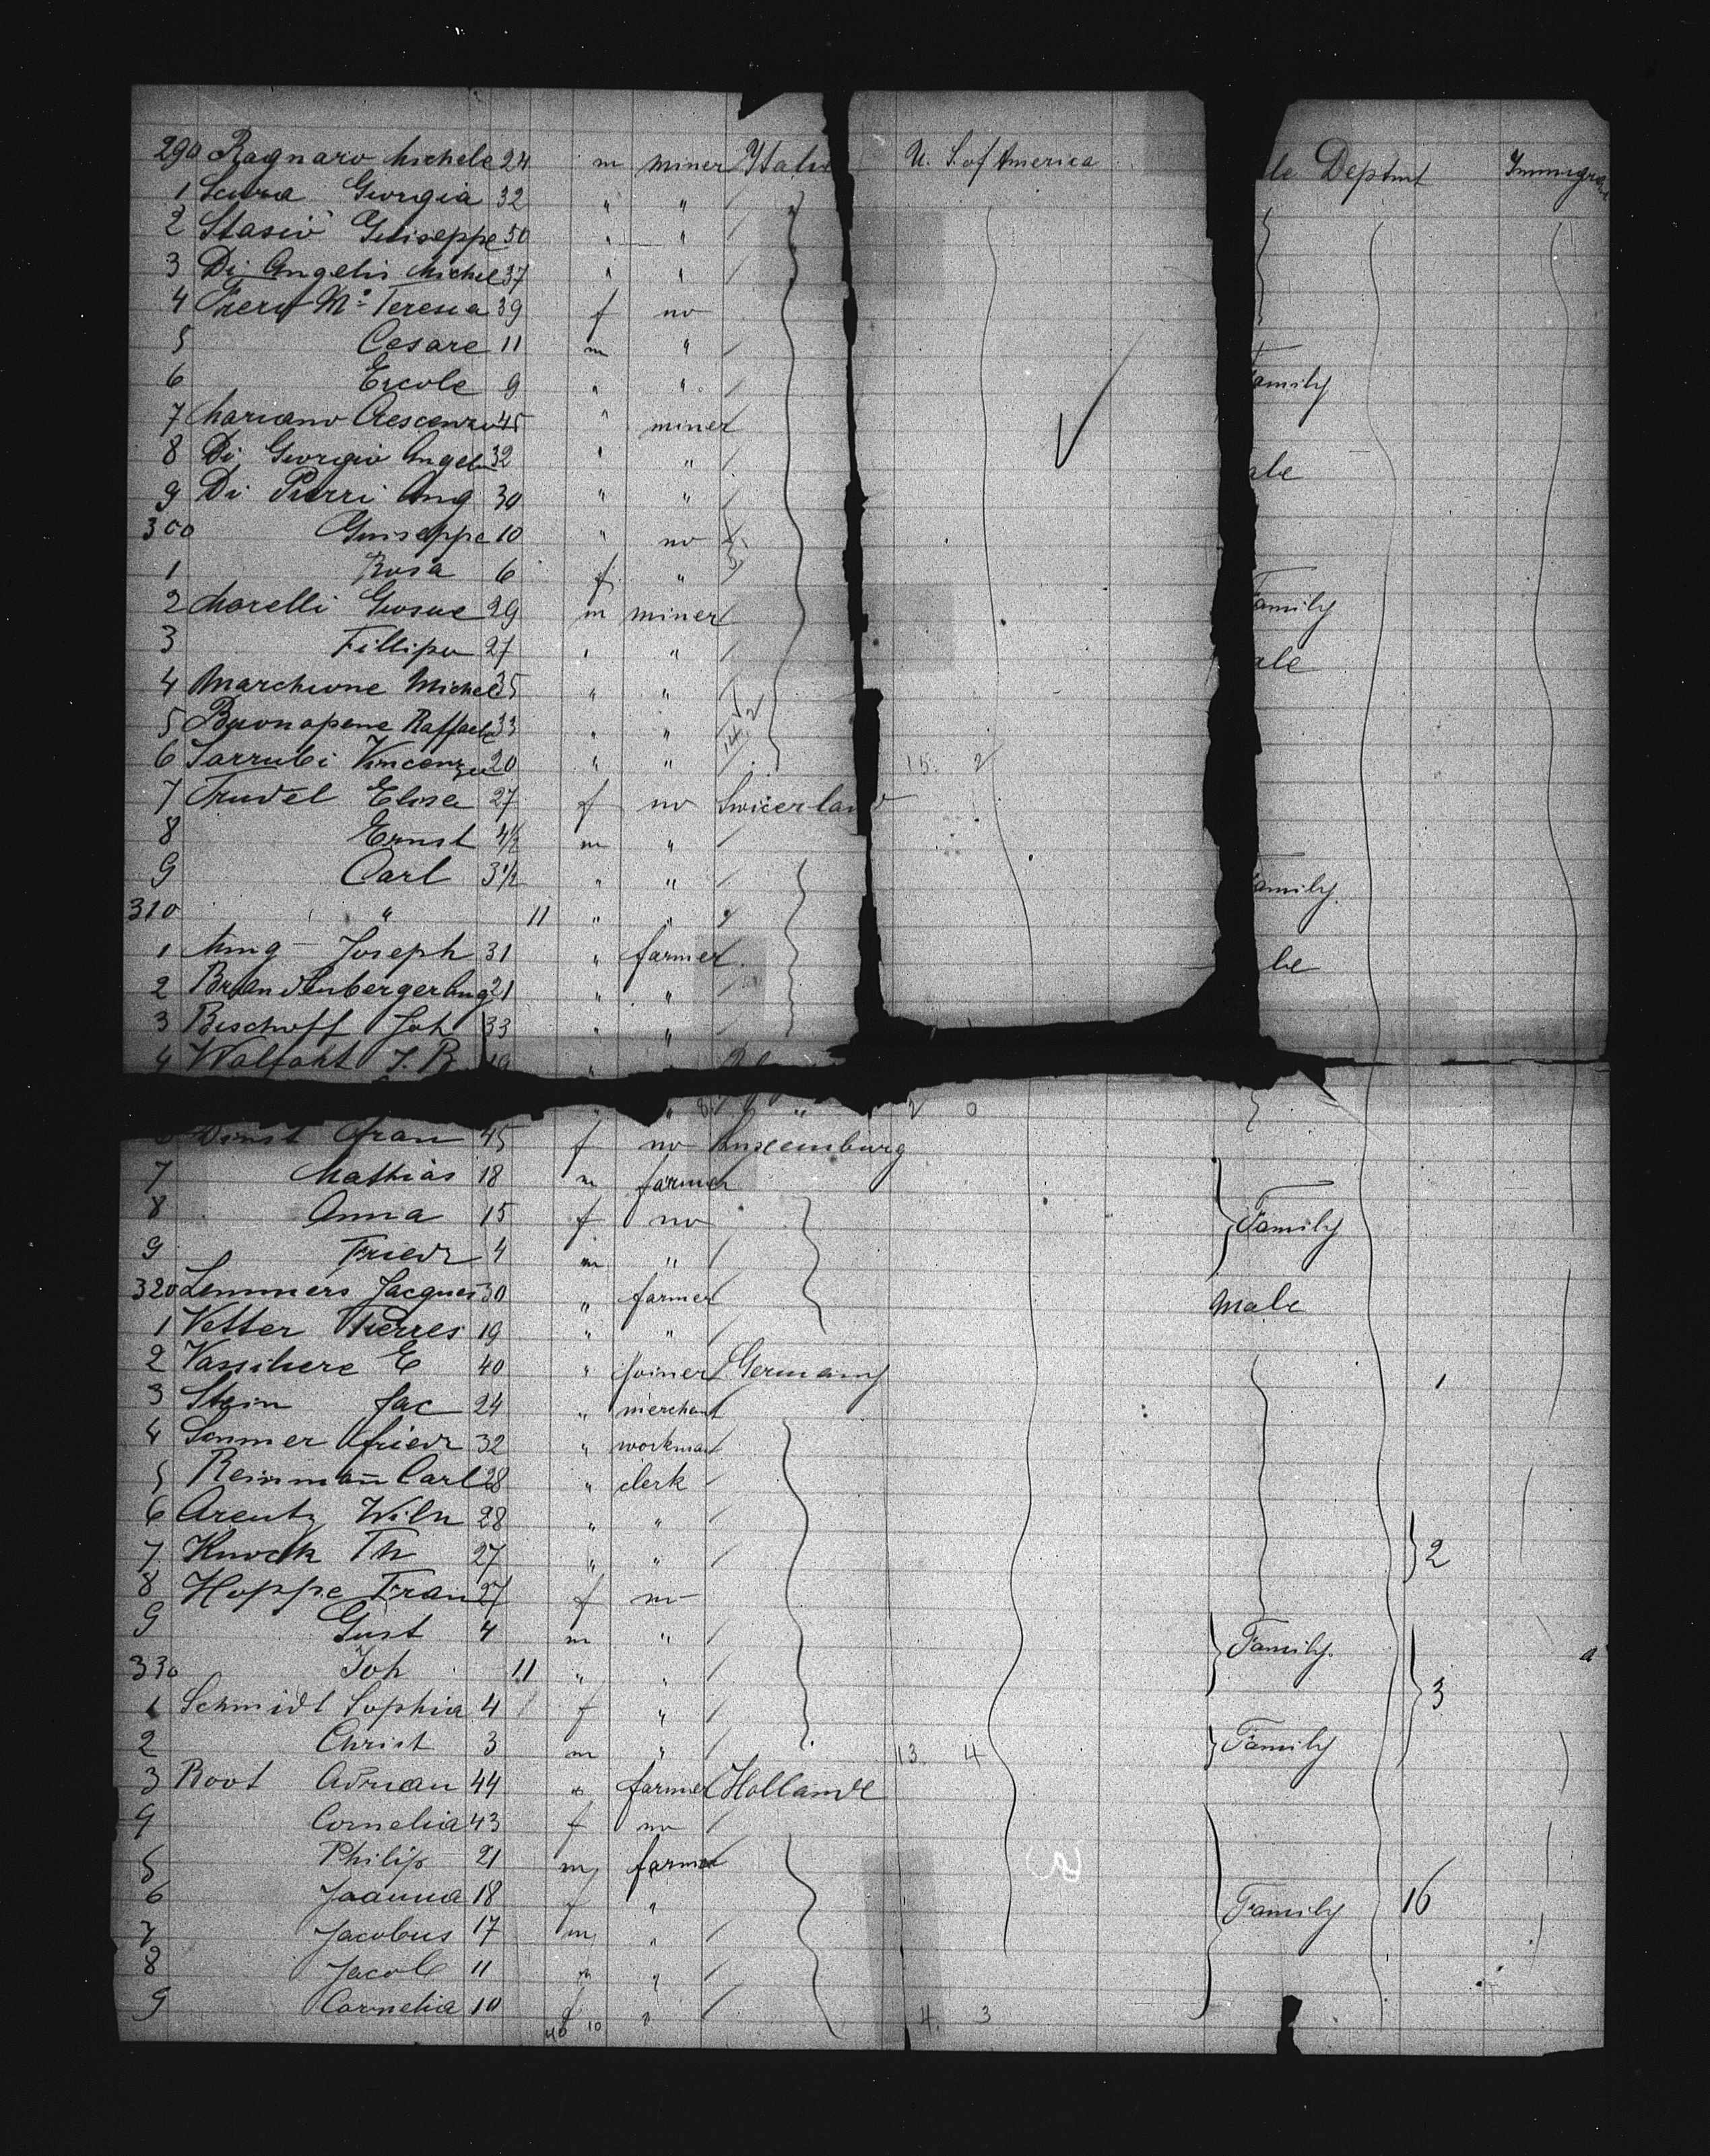 290 Ragnaro Michele 24 m miner Italie U. S. of America le Deptmt Immigra
1 Scura Giorgia 32 " "
2 Stasio Guiseppe 50 " "
3 Di Angelis Michel 37 " "
4 Mª Teresia 39 f no
5 Cesare 11 m "
6 Ercole 9 " " amily
7 Mariano Crescenzo 45 " miner
8 Di Giorgio Angelo 32 " " ale
9 Di Pierri Ang 30 " "
300 Guiseppe 10 " no
1 Rosa 6 f "
2 Morelli Giosue 29 m miner Family
3 Fillipo 27 " " ale
4 Marchione Michel 35 " "
5 Buonapene Raffaele 33 " "
6 Sarrubi Vincenzo 20 " " 14 2 15. 2
7 Trudel Elise 27 f no Swicerland
8 Ernst 4½ m "
9 Carl 3½ " " amily
310 " 11 " "
1 Ming Joseph 31 " farmer le
2 Brandenberger Aug 21 " "
3 Bischoff Joh 33 " "
4 Walfaht J. B 19 "
" " 2 0
Dinst Fran 45 f no Luxemburg
7 Mathias 18 m farmer
8 Anna 15 f no Family
9 Friedr 4 m "
320 Lemmers Jacques 30 " farmer Male
1 Vetter Pierres 19 " "
2 Vassihere E 40 " joiner Germany 1
3 Stein Jac 24 " merchant
4 Sommer Friedr 32 " workman
5 Reinmann Carl 28 " clerk
6 Arentz Wilh 28 " "
7 Knock Th 27 " " 2
8 Hoppe Frau 27 f no
9 Gust 4 m " Family
330 Joh 11 " "
1 Schmidt Sophia 4 f " 3
2 Christ 3 m " 13. 4 Family
3 Root Adrian 44 " farmer Hollande
4 Cornelia 43 f no
5 Philip 21 m farmer
6 Joanna 18 f " Family 16
7 Jacobus 17 m "
8 Jacob 11 m "
9 Cornelia 10 f " 4. 3
40 10